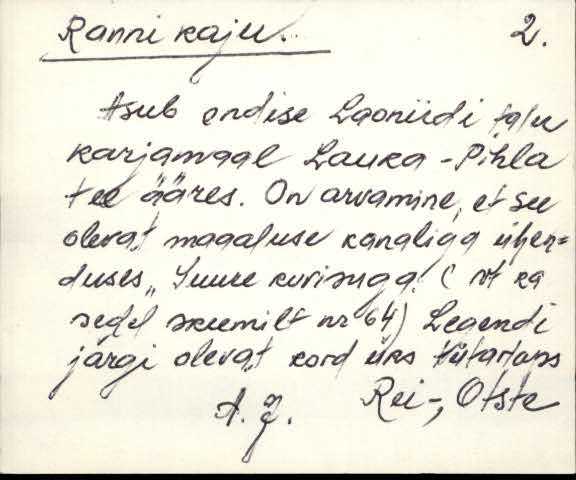 Ranni kaju. 2.
Asub endise Laoniidi talu
karjamaal Lauka - Pihla
tee ääres. On arvamine, et see
olevat maaaluse kanaliga ühen-
duses „Suure kurisuga. ( vt ka
sedel skeemilt nr 64) Legendi
järgi olevat kord üks tütarlaps
A. J. Rei-, Otste